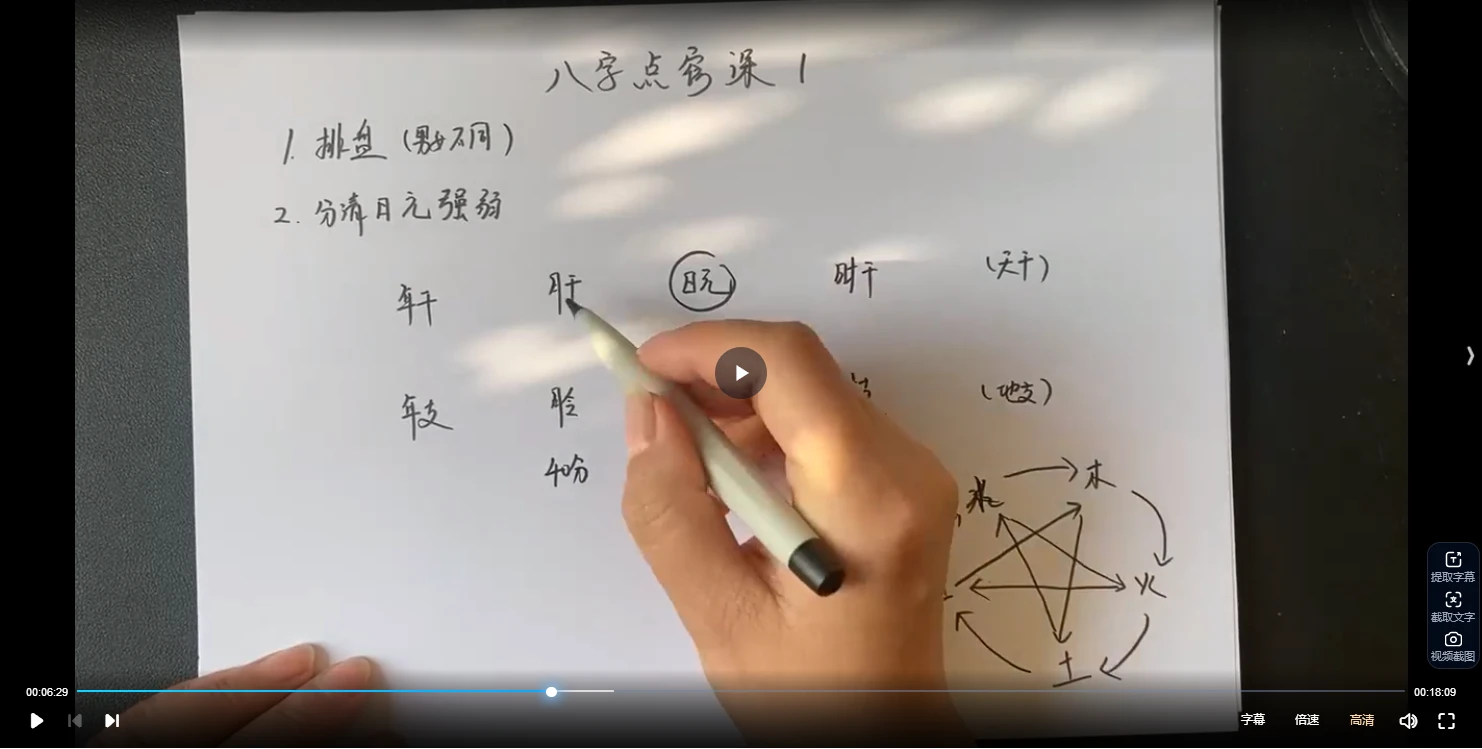 八字点窍课 1
1. 排盘 (男女不同)
2. 分清日元强弱
年干 月干 日元 时干 (天干)
年支 月令 (地支)
40分
水 木
火
土
提取字幕
截取文字
视频截图
00:06:29 00:18:09
字幕 倍速 高清